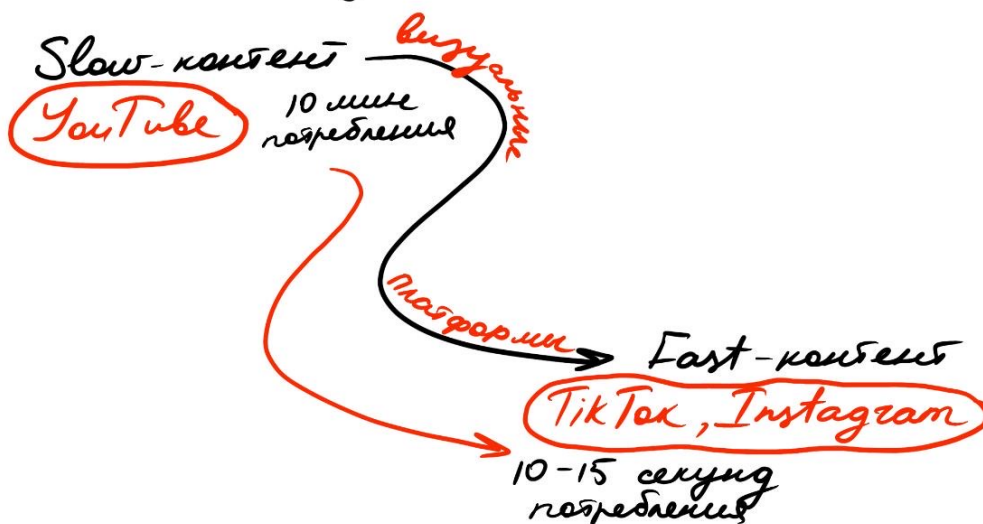 Slow-контент
YouTube
10 мин
потребления
визуальные
платформы
Fast-контент
TikTok, Instagram
10-15 секунд
потребления